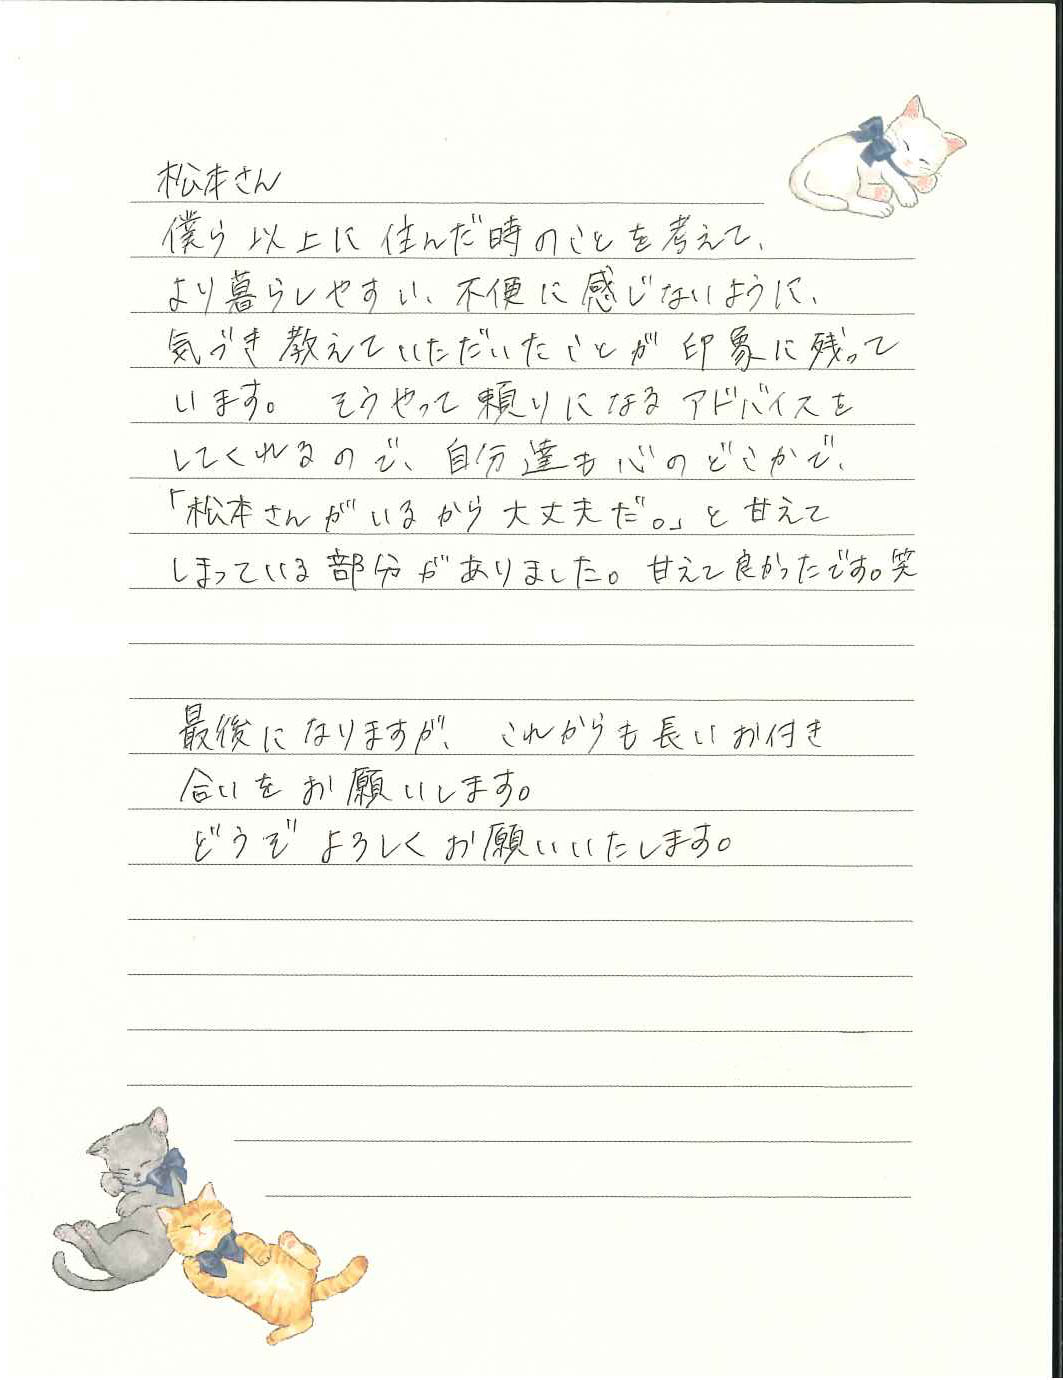 松本さん
僕ら以上に住んだ時のことを考えて、
より暮らしやすい、不便に感じないように、
気づき教えていただいたことが印象に残って
います。 そうやって頼りになるアドバイスを
してくれるので、自分達も心のどこかで、
「松本さんがいるから大丈夫だ。」と甘えて
しまっている部分がありました。甘えて良かったです。笑
最後になりますが、 これからも長いお付き
合いをお願いします。
どうぞよろしくお願いいたします。